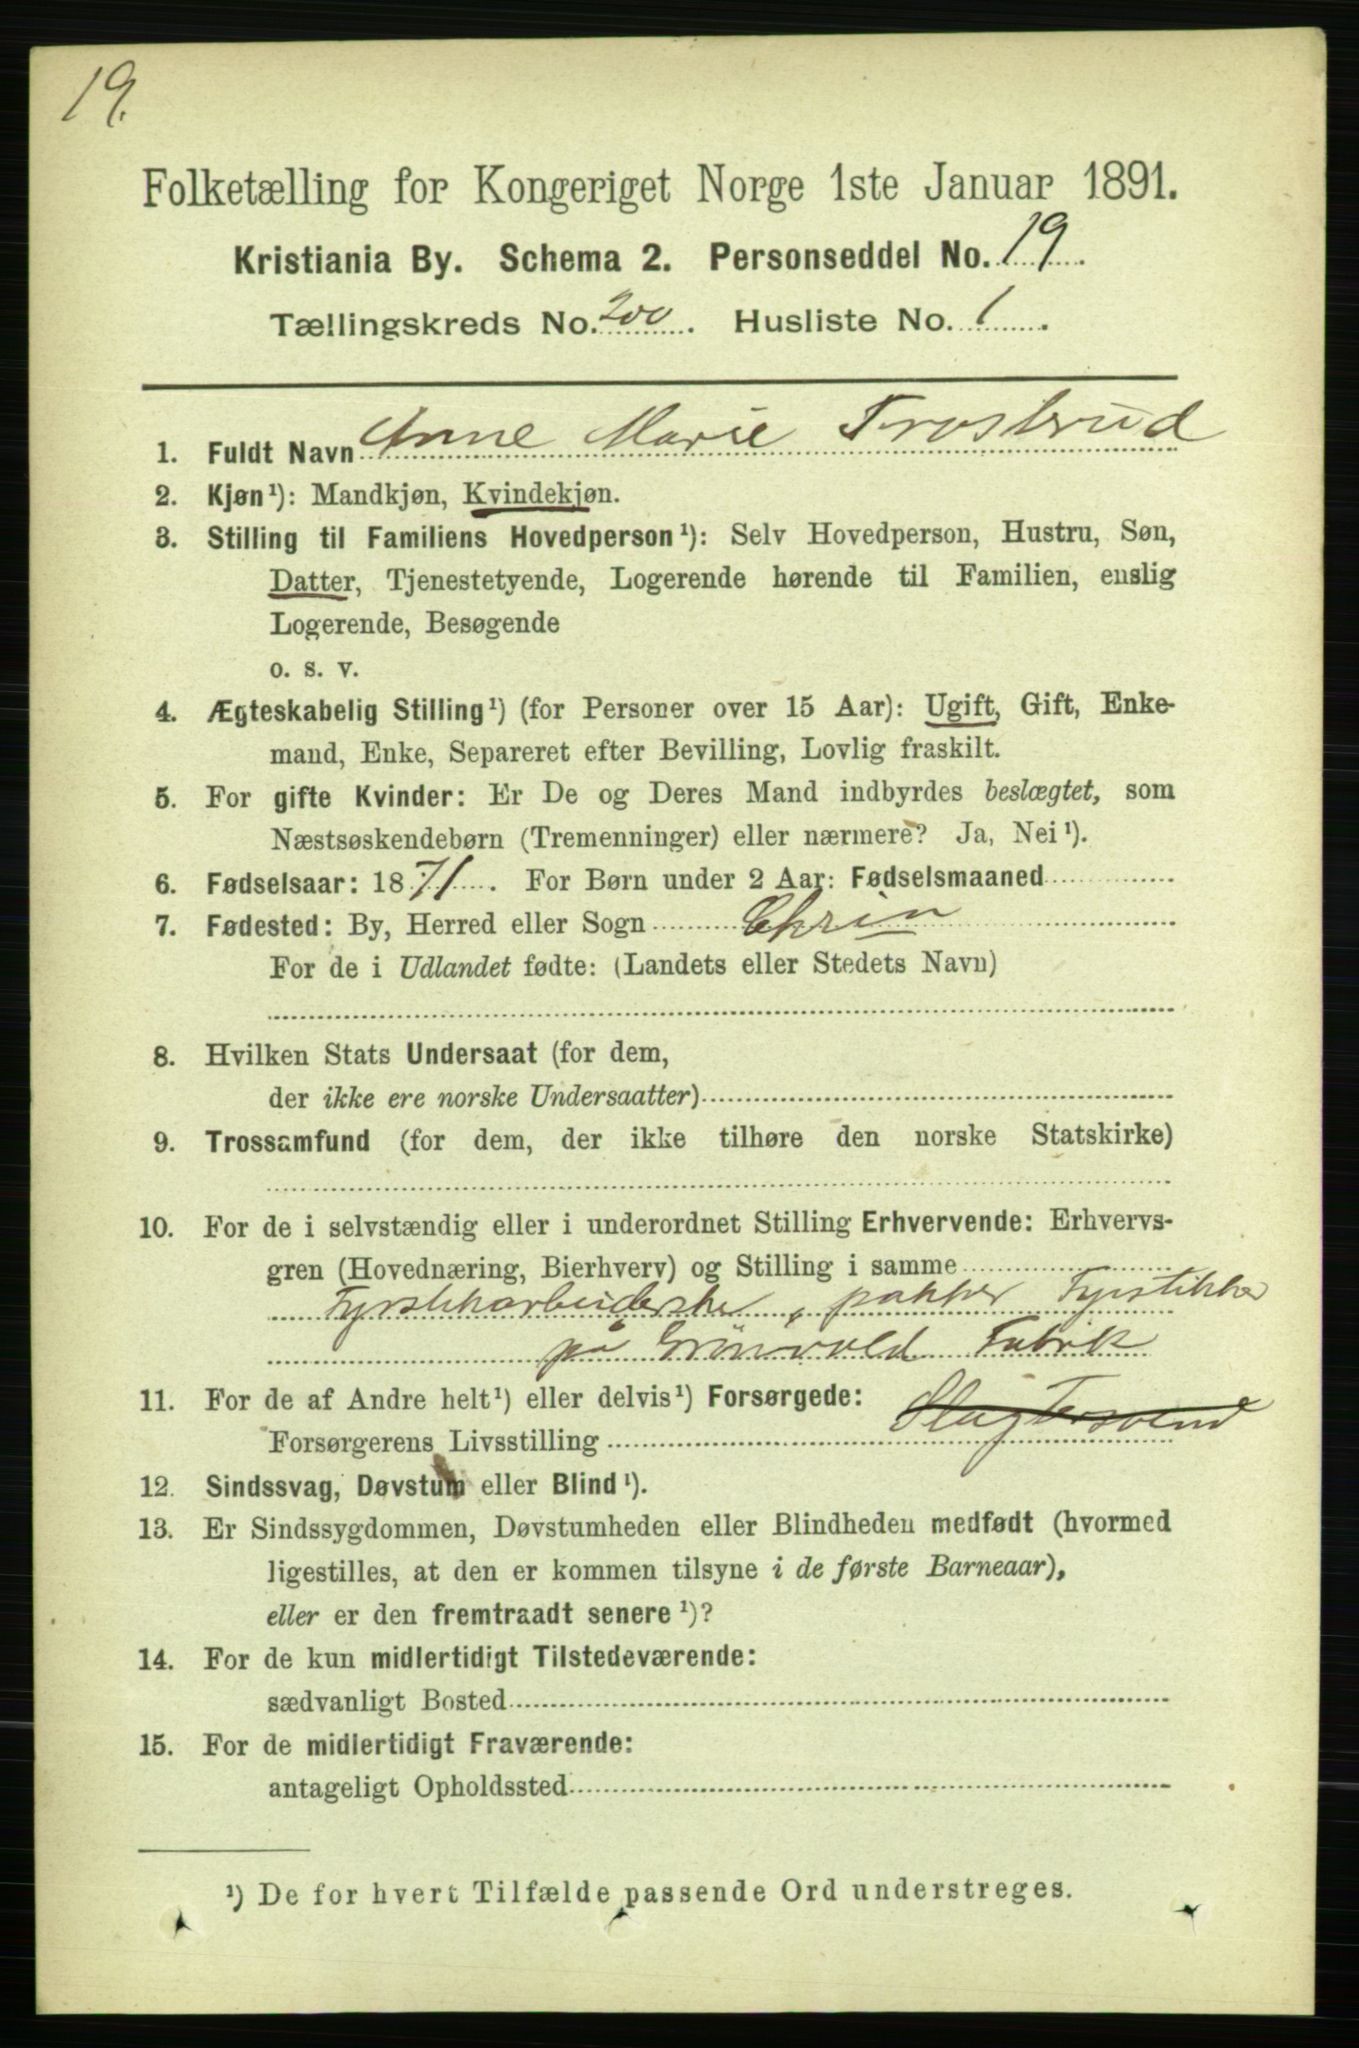 19.
Folketælling for Kongeriget Norge 1ste Januar 1891.
Kristiania By. Schema 2. Personseddel No. 19.
Tællingskreds No. 200. Husliste No. 1.
1. Fuldt Navn Anne Marie Frostrud
2. Kjøn¹): Mandkjøn, Kvindekjøn.
3. Stilling til Familiens Hovedperson¹): Selv Hovedperson, Hustru, Søn,
Datter, Tjenestetyende, Logerende hørende til Familien, enslig
Logerende, Besøgende
o. s. v.
4. Ægteskabelig Stilling¹) (for Personer over 15 Aar): Ugift, Gift, Enke-
mand, Enke, Separeret efter Bevilling, Lovlig fraskilt.
5. For gifte Kvinder: Er De og Deres Mand indbyrdes beslægtet, som
Næstsøskendebørn (Tremenninger) eller nærmere? Ja, Nei¹).
6. Fødselsaar: 1871. For Børn under 2 Aar: Fødselsmaaned
7. Fødested: By, Herred eller Sogn Chrin
For de i Udlandet fødte: (Landets eller Stedets Navn)
8. Hvilken Stats Undersaat (for dem,
der ikke ere norske Undersaatter)
9. Trossamfund (for dem, der ikke tilhøre den norske Statskirke)
10. For de i selvstændig eller i underordnet Stilling Erhvervende: Erhvervs-
gren (Hovednæring, Bierhverv) og Stilling i samme
Fyrstikarbeiderske, pakker Fyrstikker
på Grönvold Fabrik
11. For de af Andre helt¹) eller delvis¹) Forsørgede:
Forsørgerens Livsstilling Slagtersvend
12. Sindssvag, Døvstum eller Blind¹).
13. Er Sindssygdommen, Døvstumheden eller Blindheden medfødt (hvormed
ligestilles, at den er kommen tilsyne i de første Barneaar),
eller er den fremtraadt senere¹)?
14. For de kun midlertidigt Tilstedeværende:
sædvanligt Bosted
15. For de midlertidigt Fraværende:
antageligt Opholdssted
¹) De for hvert Tilfælde passende Ord understreges.